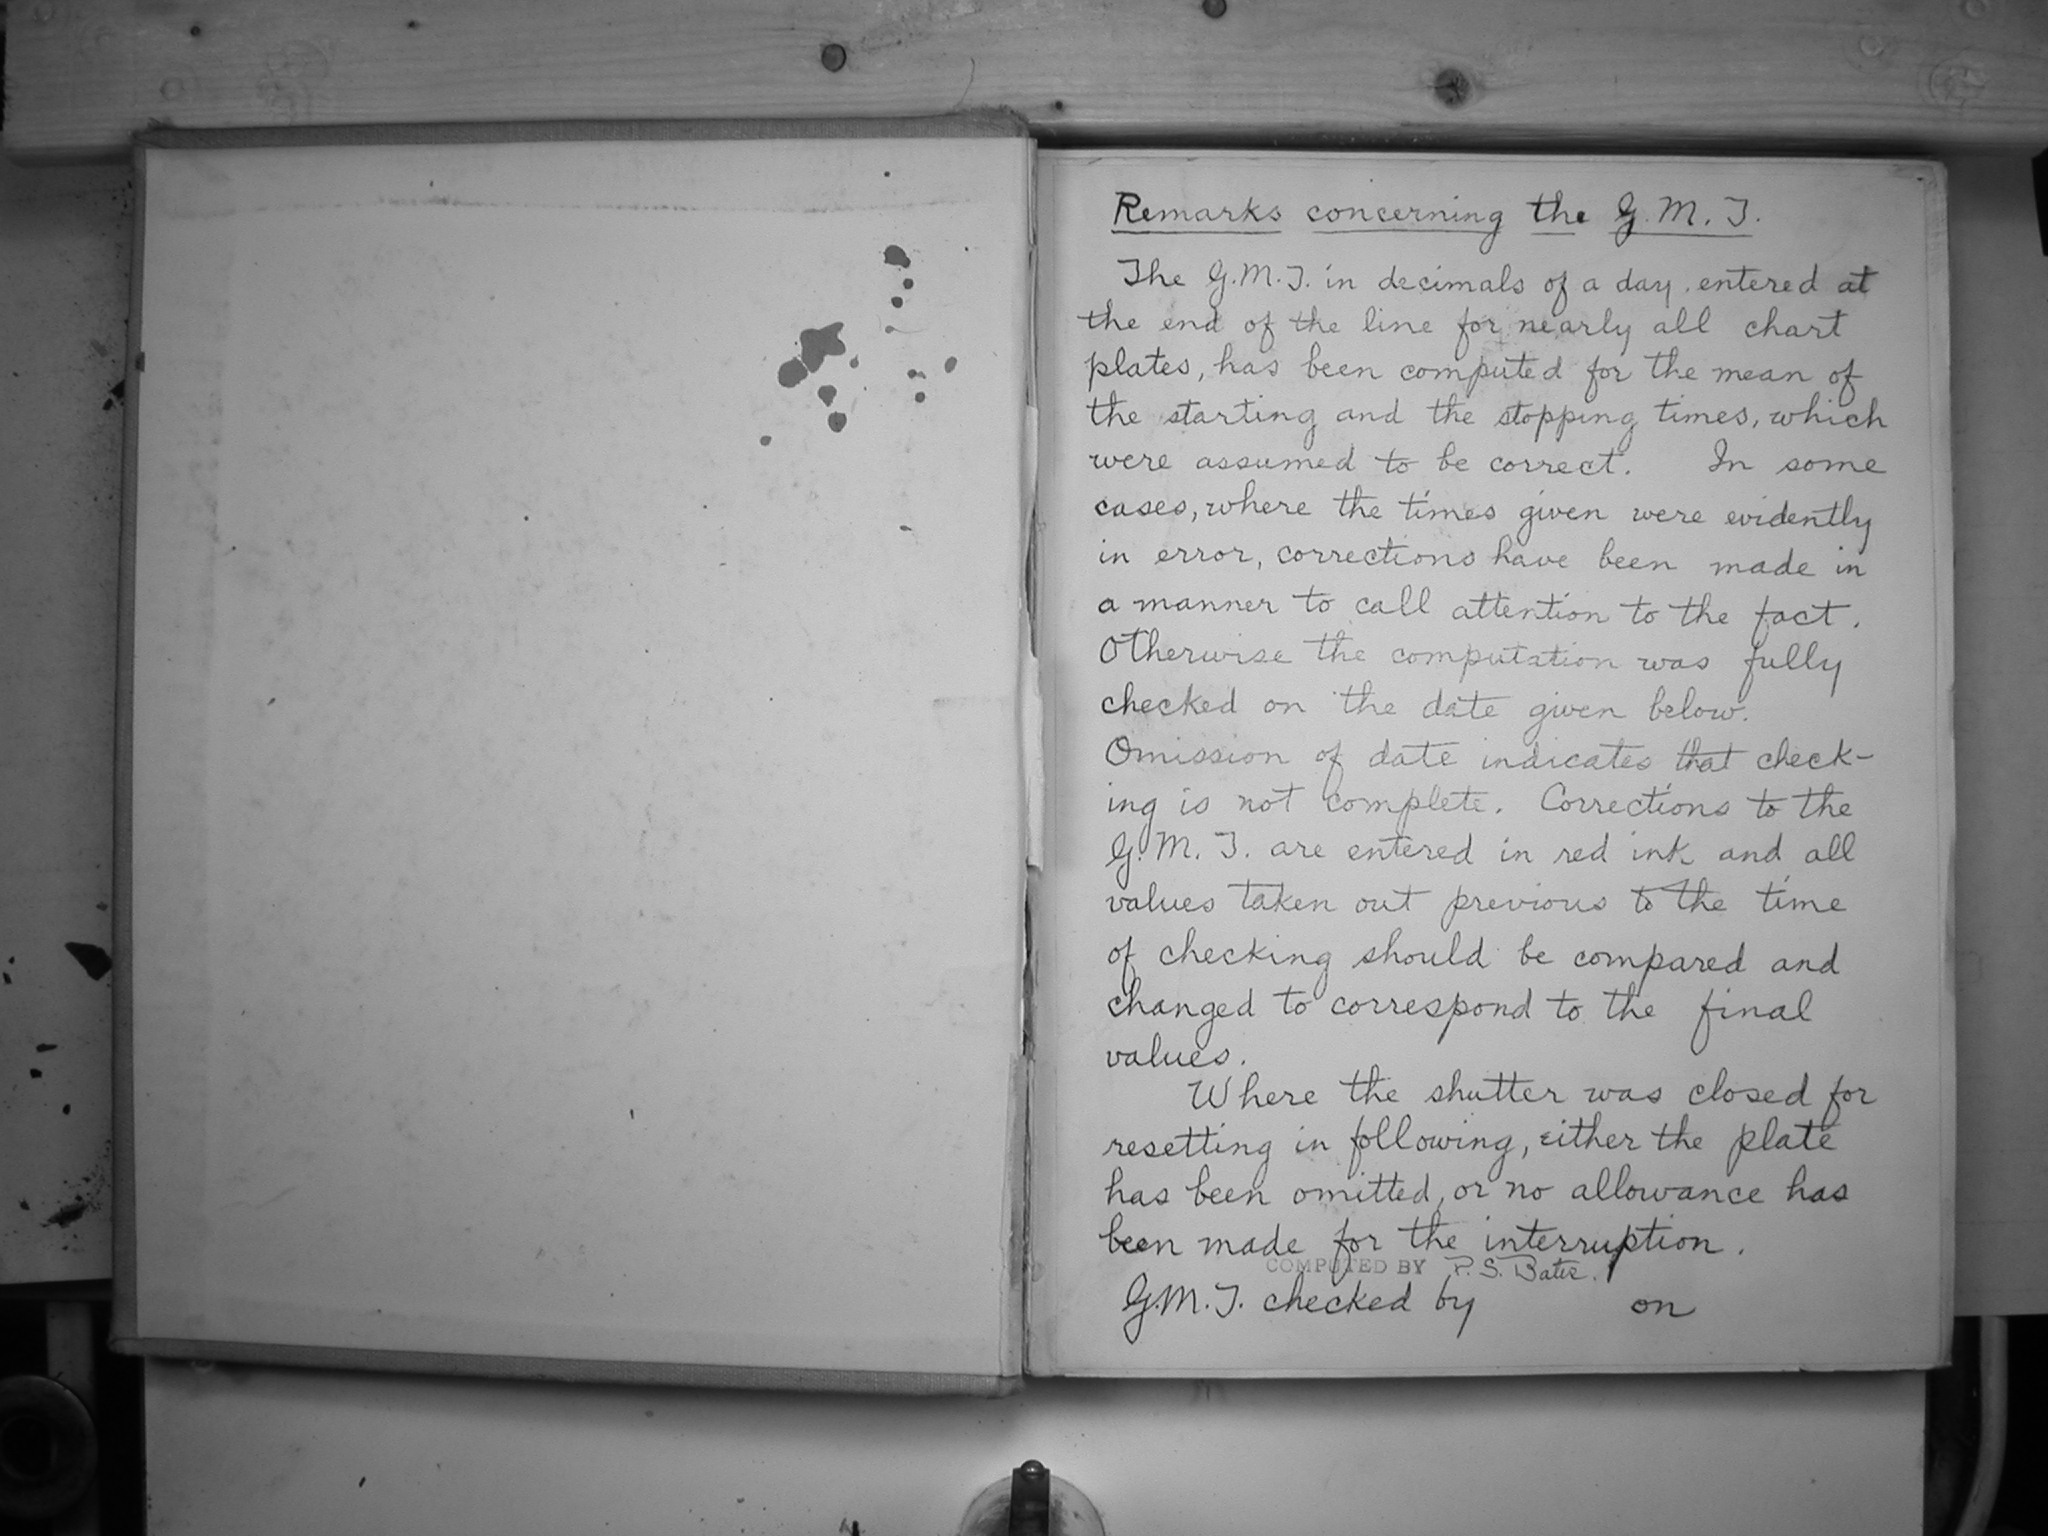 Remarks concerning the G.M.T.
The G.M.T. in decimals of a day, entered at
the end of the line for nearly all chart
plates, has been computed for the mean of
the starting and the stopping times, which
were assumed to be correct. In some
cases, where the times given were evidently
in error, corrections have been made in
a manner to call attention to the fact.
Otherwise the computation was fully
checked on the date given below.
Omission of date indicates that check-
ing is not complete. Corrections to the
G.M.T. are entered in red ink and all
values taken out previous to the time
of checking should be compared and
changed to correspond to the final
values.
Where the shutter was closed for
resetting in following, either the plate
has been omitted, or no allowance has
been made for the interruption.
COMPUTED BY P. S. 
G.M.T. checked by on